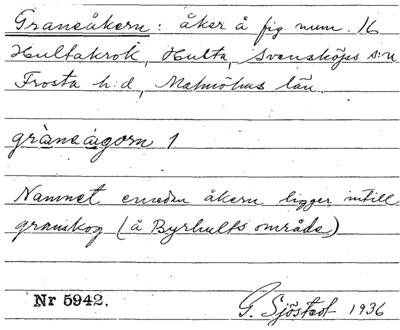 Graneåkern: åker å fig. num. 16
Hultakrok, Hulta, Svensköps s:n
Frosta h:d, Malmöhus län.
gràneågorn 1
Namnet emedan åkern ligger intill
granskog (å Byrhults område)
Nr 5942.
G. Sjöstedt 1936